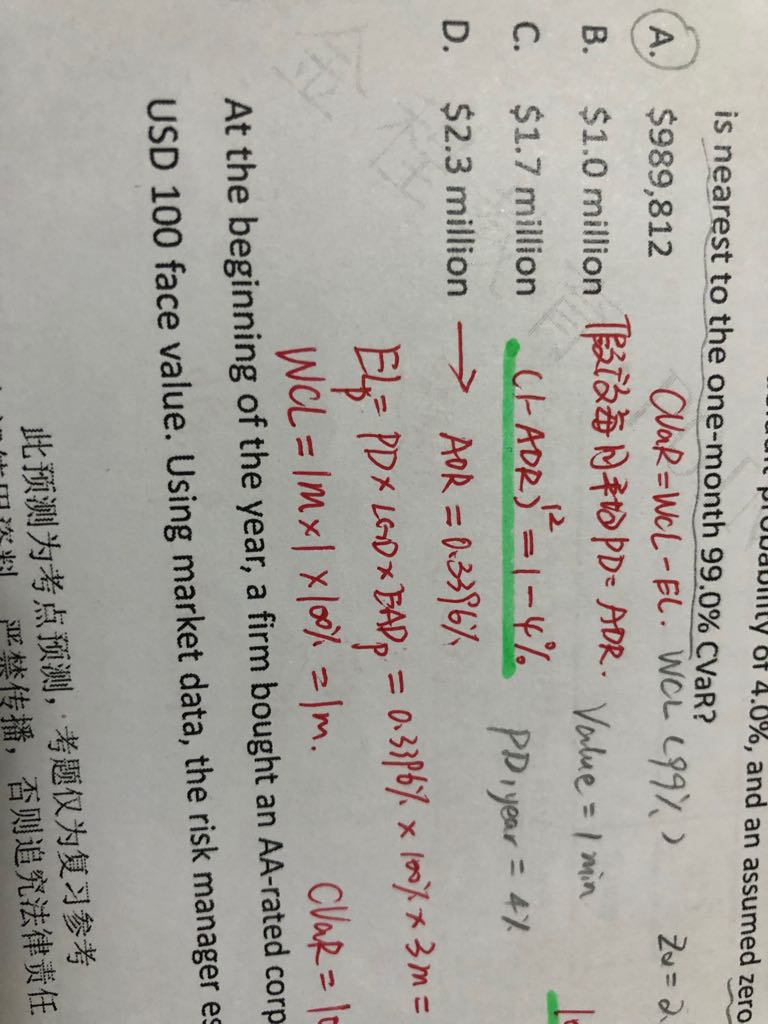 probability of 4.0%, and an assumed zero
is nearest to the one-month 99.0% CVaR?
A. $989,812
CVaR = WCL - EL. WCL (99%)
B. $1.0 million
假设每月平均PD = ADR. Value = 1 min
C. $1.7 million
(1-ADR)^12 = 1-4% PD, year = 4%
D. $2.3 million → ADR = 0.3396%
ELp = PD × LGD × EADp = 0.3396% × 100% × 3m =
WCL = 1m × 1 × 100% = 1m. CVaR =
At the beginning of the year, a firm bought an AA-rated corp
USD 100 face value. Using market data, the risk manager es
此预测为考点预测，考题仅为复习参考
严禁传播，否则追究法律责任